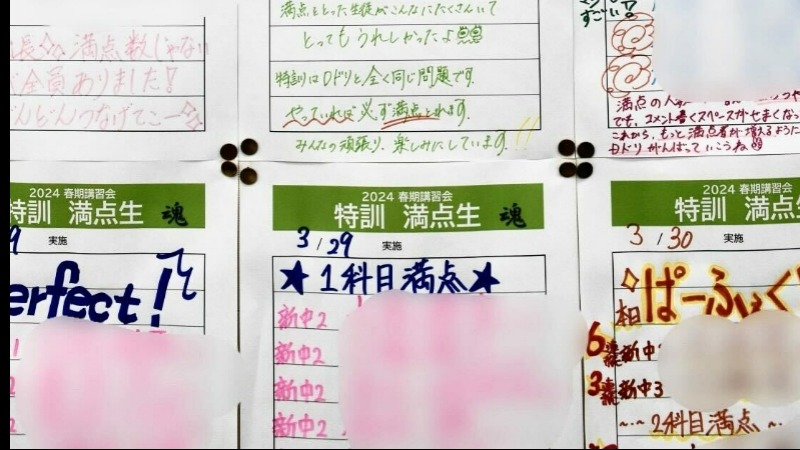 満点数じゃない
全員ありました!
どんどんつなげてこー
満点をとった生徒がこんなにたくさんいて
とってもうれしかったよ
特訓はDドリと全く同じ問題です。
やっていれば必ず満点とれます。
みんなの頑張り、楽しみにしています!!
すごい!
満点の人
でも、コメント書くスペースがせまくなっ
これから、もっと満点者が増えるように
Dドリがんばっていこうね
2024 春期講習会
特訓 満点生 魂
9 実施
erfect!
1
2
2
2024 春期講習会
特訓 満点生 魂
3/29 実施
★1科目満点★
新中2
新中2
新中2
新中2
2024 春期講習会
特訓 満点生
3/30 実施
ぱーふぇく
6 新中
3 新中3
~2科目満点~